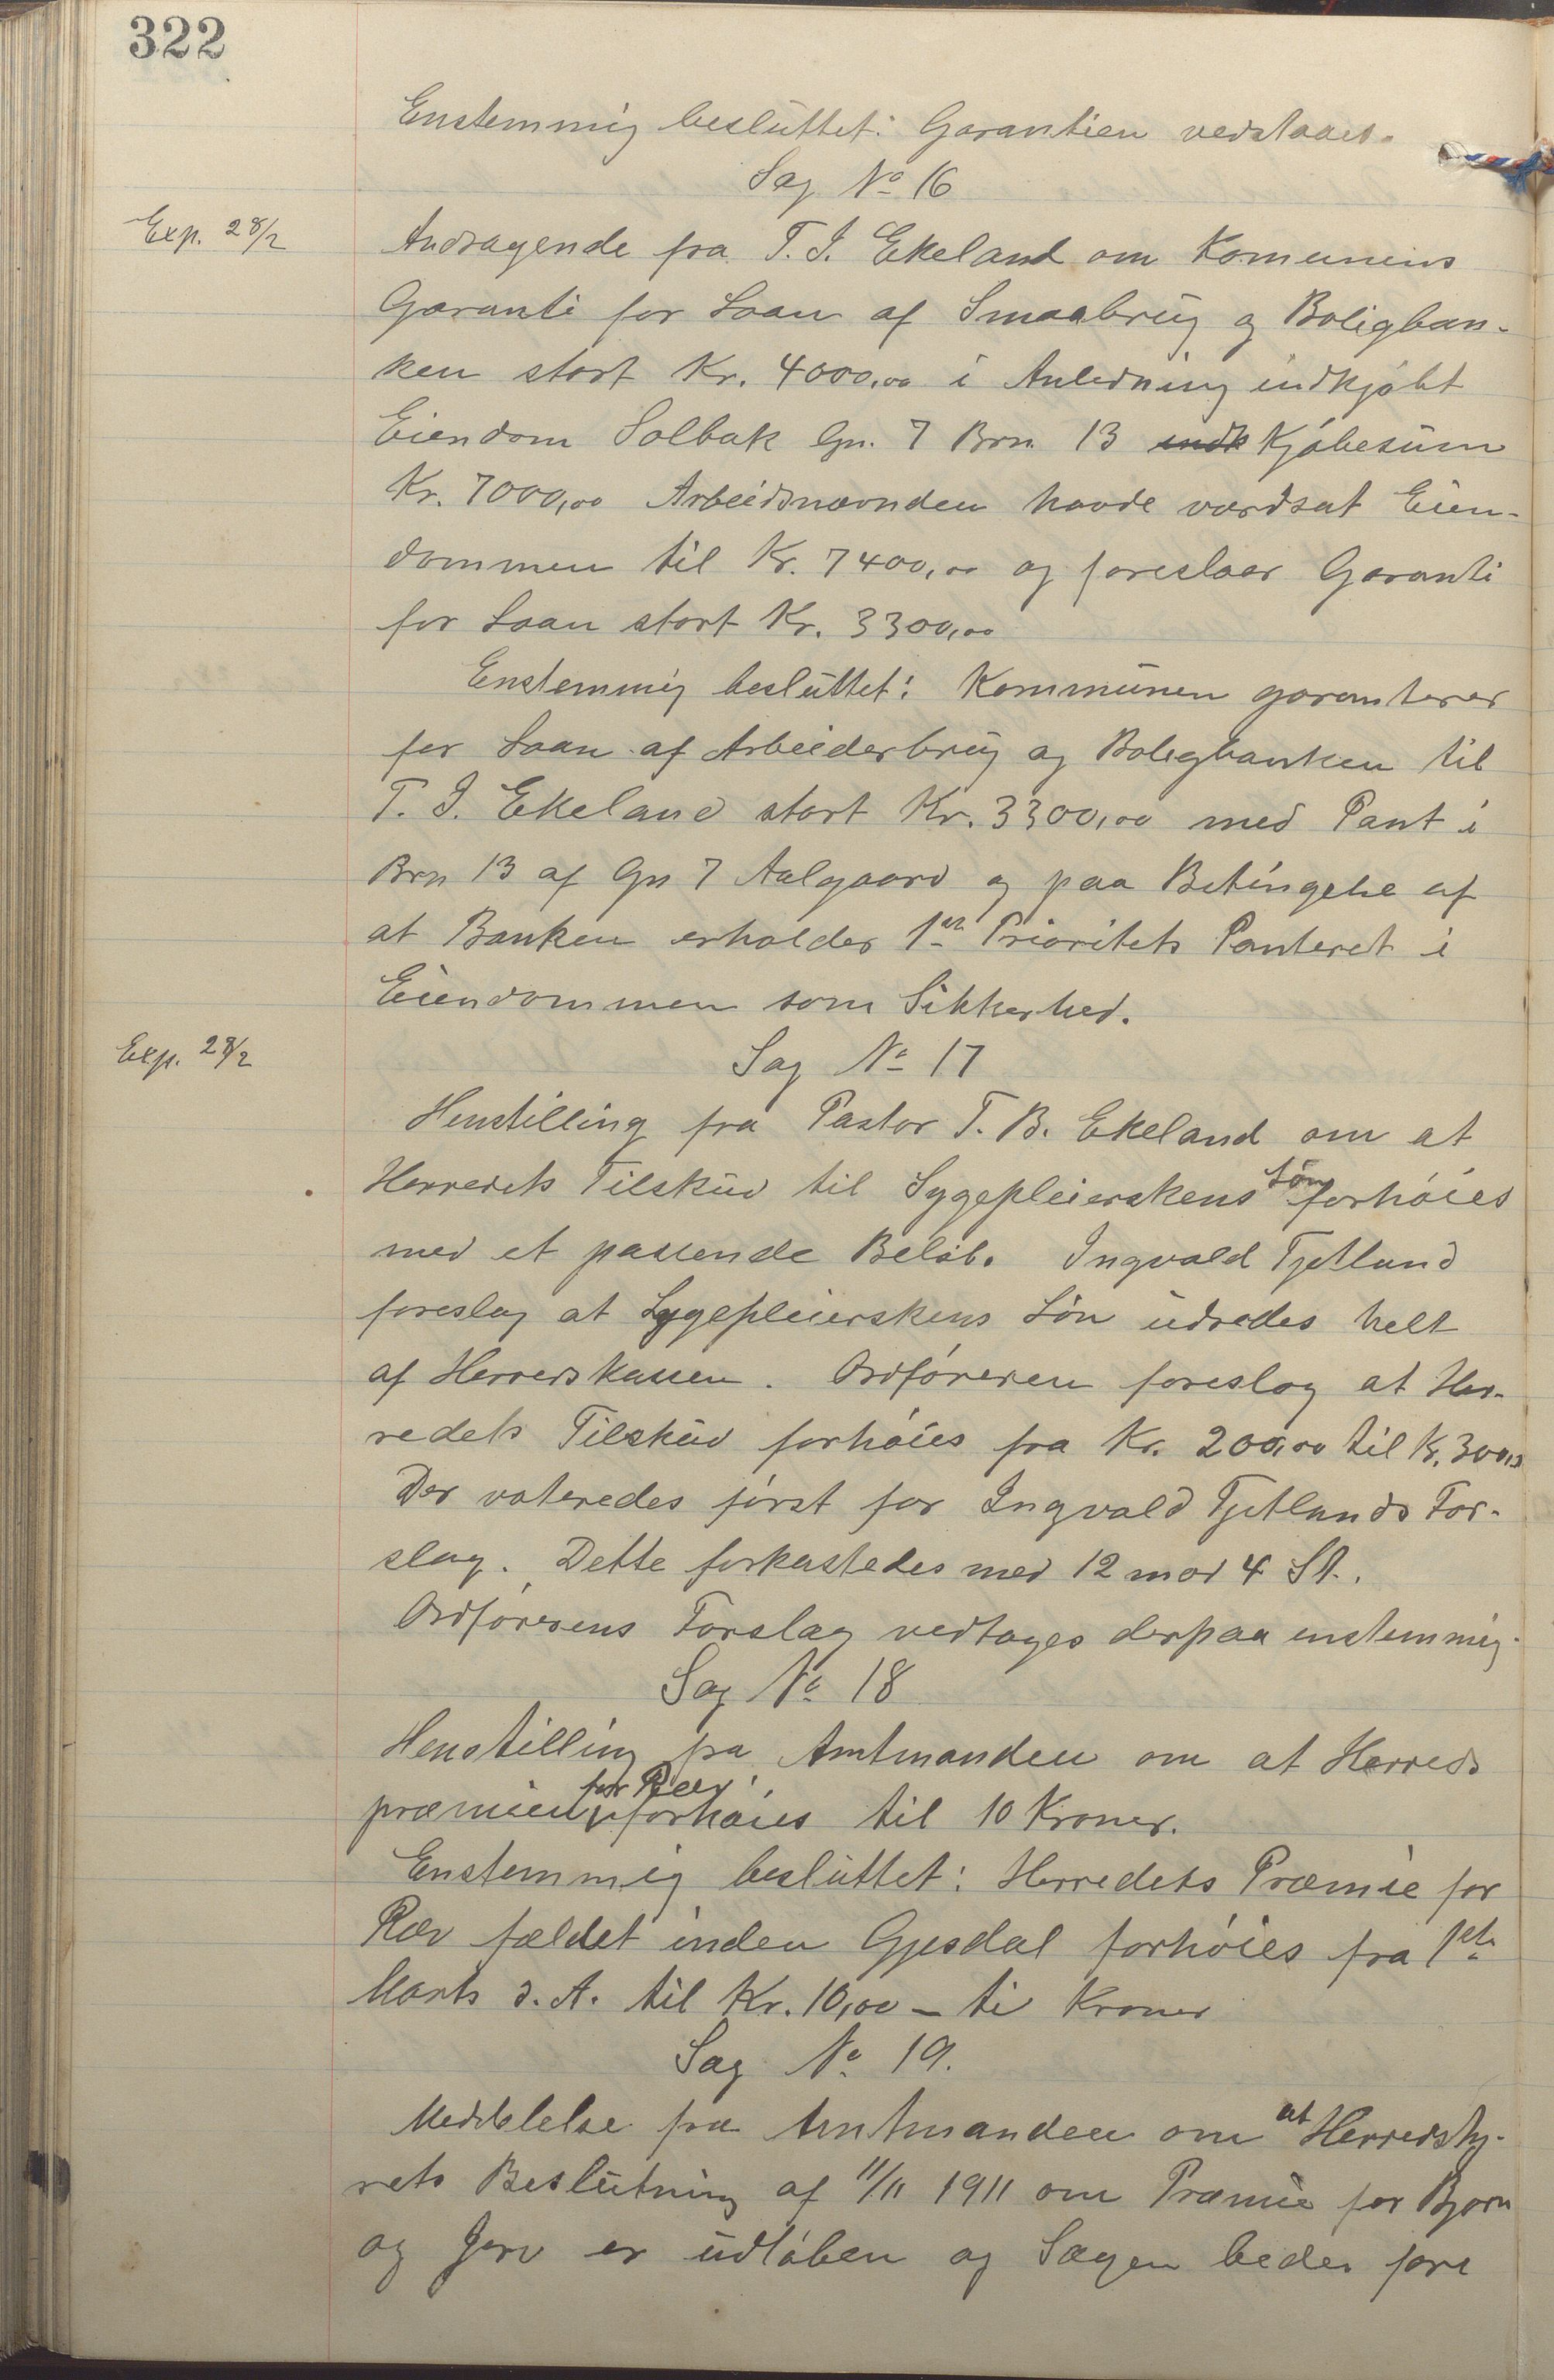 322
Enstemmig besluttet: Garantien vedstaaes.
Sag No 16
Exp. 28/2
Andragende fra T. I. Ekeland om Komunens
Garanti for Laan af Smaabrug og Boligban-
ken stort Kr. 4000,00 i Anledning indkjøbt
Eiendom Solbak Gn. 7 Brn. 13 indk Kjøbesum
Kr. 7000,00 Arbeidsnævnden havde værdsat Eien-
dommen til Kr. 7400,00 og foreslaar Garanti
for Laan stort Kr. 3300,00
Enstemmig besluttet: Kommunen garanterer
for Laan af Arbeiderbrug og Boligbanken til
T. I. Ekeland stort Kr. 3300,00 med Pant i
Brn 13 af Gn 7 Aalgaard og paa Betingelse af
at Banken erholder 1ste Prioritets Panteret i
Eiendommen som Sikkerhed.
Exp. 28/2
Sag No 17
Henstilling fra Pastor T. B. Ekeland om at
Herredets Tilskud til Sygepleierskens Løn forhøies
med et passende Beløb. Ingvald Tjetland
foreslog at Sygepleierskens Løn udredes helt
af Herredskassen. Ordføreren foreslog at Her-
redets Tilskud forhøies fra Kr. 200,00 til Kr. 300,00
Der voteredes først for Ingvald Tjetlands For-
slag. Dette forkastedes med 12 mod 4 St.
Ordførerens Forslag vedtoges derpaa enstemmig.
Sag No 18
Henstilling fra Amtmanden om at Herreds
præmien for Ræv forhøies til 10 Kroner.
Enstemmig besluttet: Herredets Præmie for
Ræv fældet inden Gjesdal forhøies fra 1ste
Marts d. A. til Kr. 10,00 – ti Kroner
Sag No 19.
Meddelelse fra Amtmanden om at Herredsty-
rets Beslutning af 11/11 1911 om Præmie for Bjørn
og Jerv er udløben og Sagen bedes fore